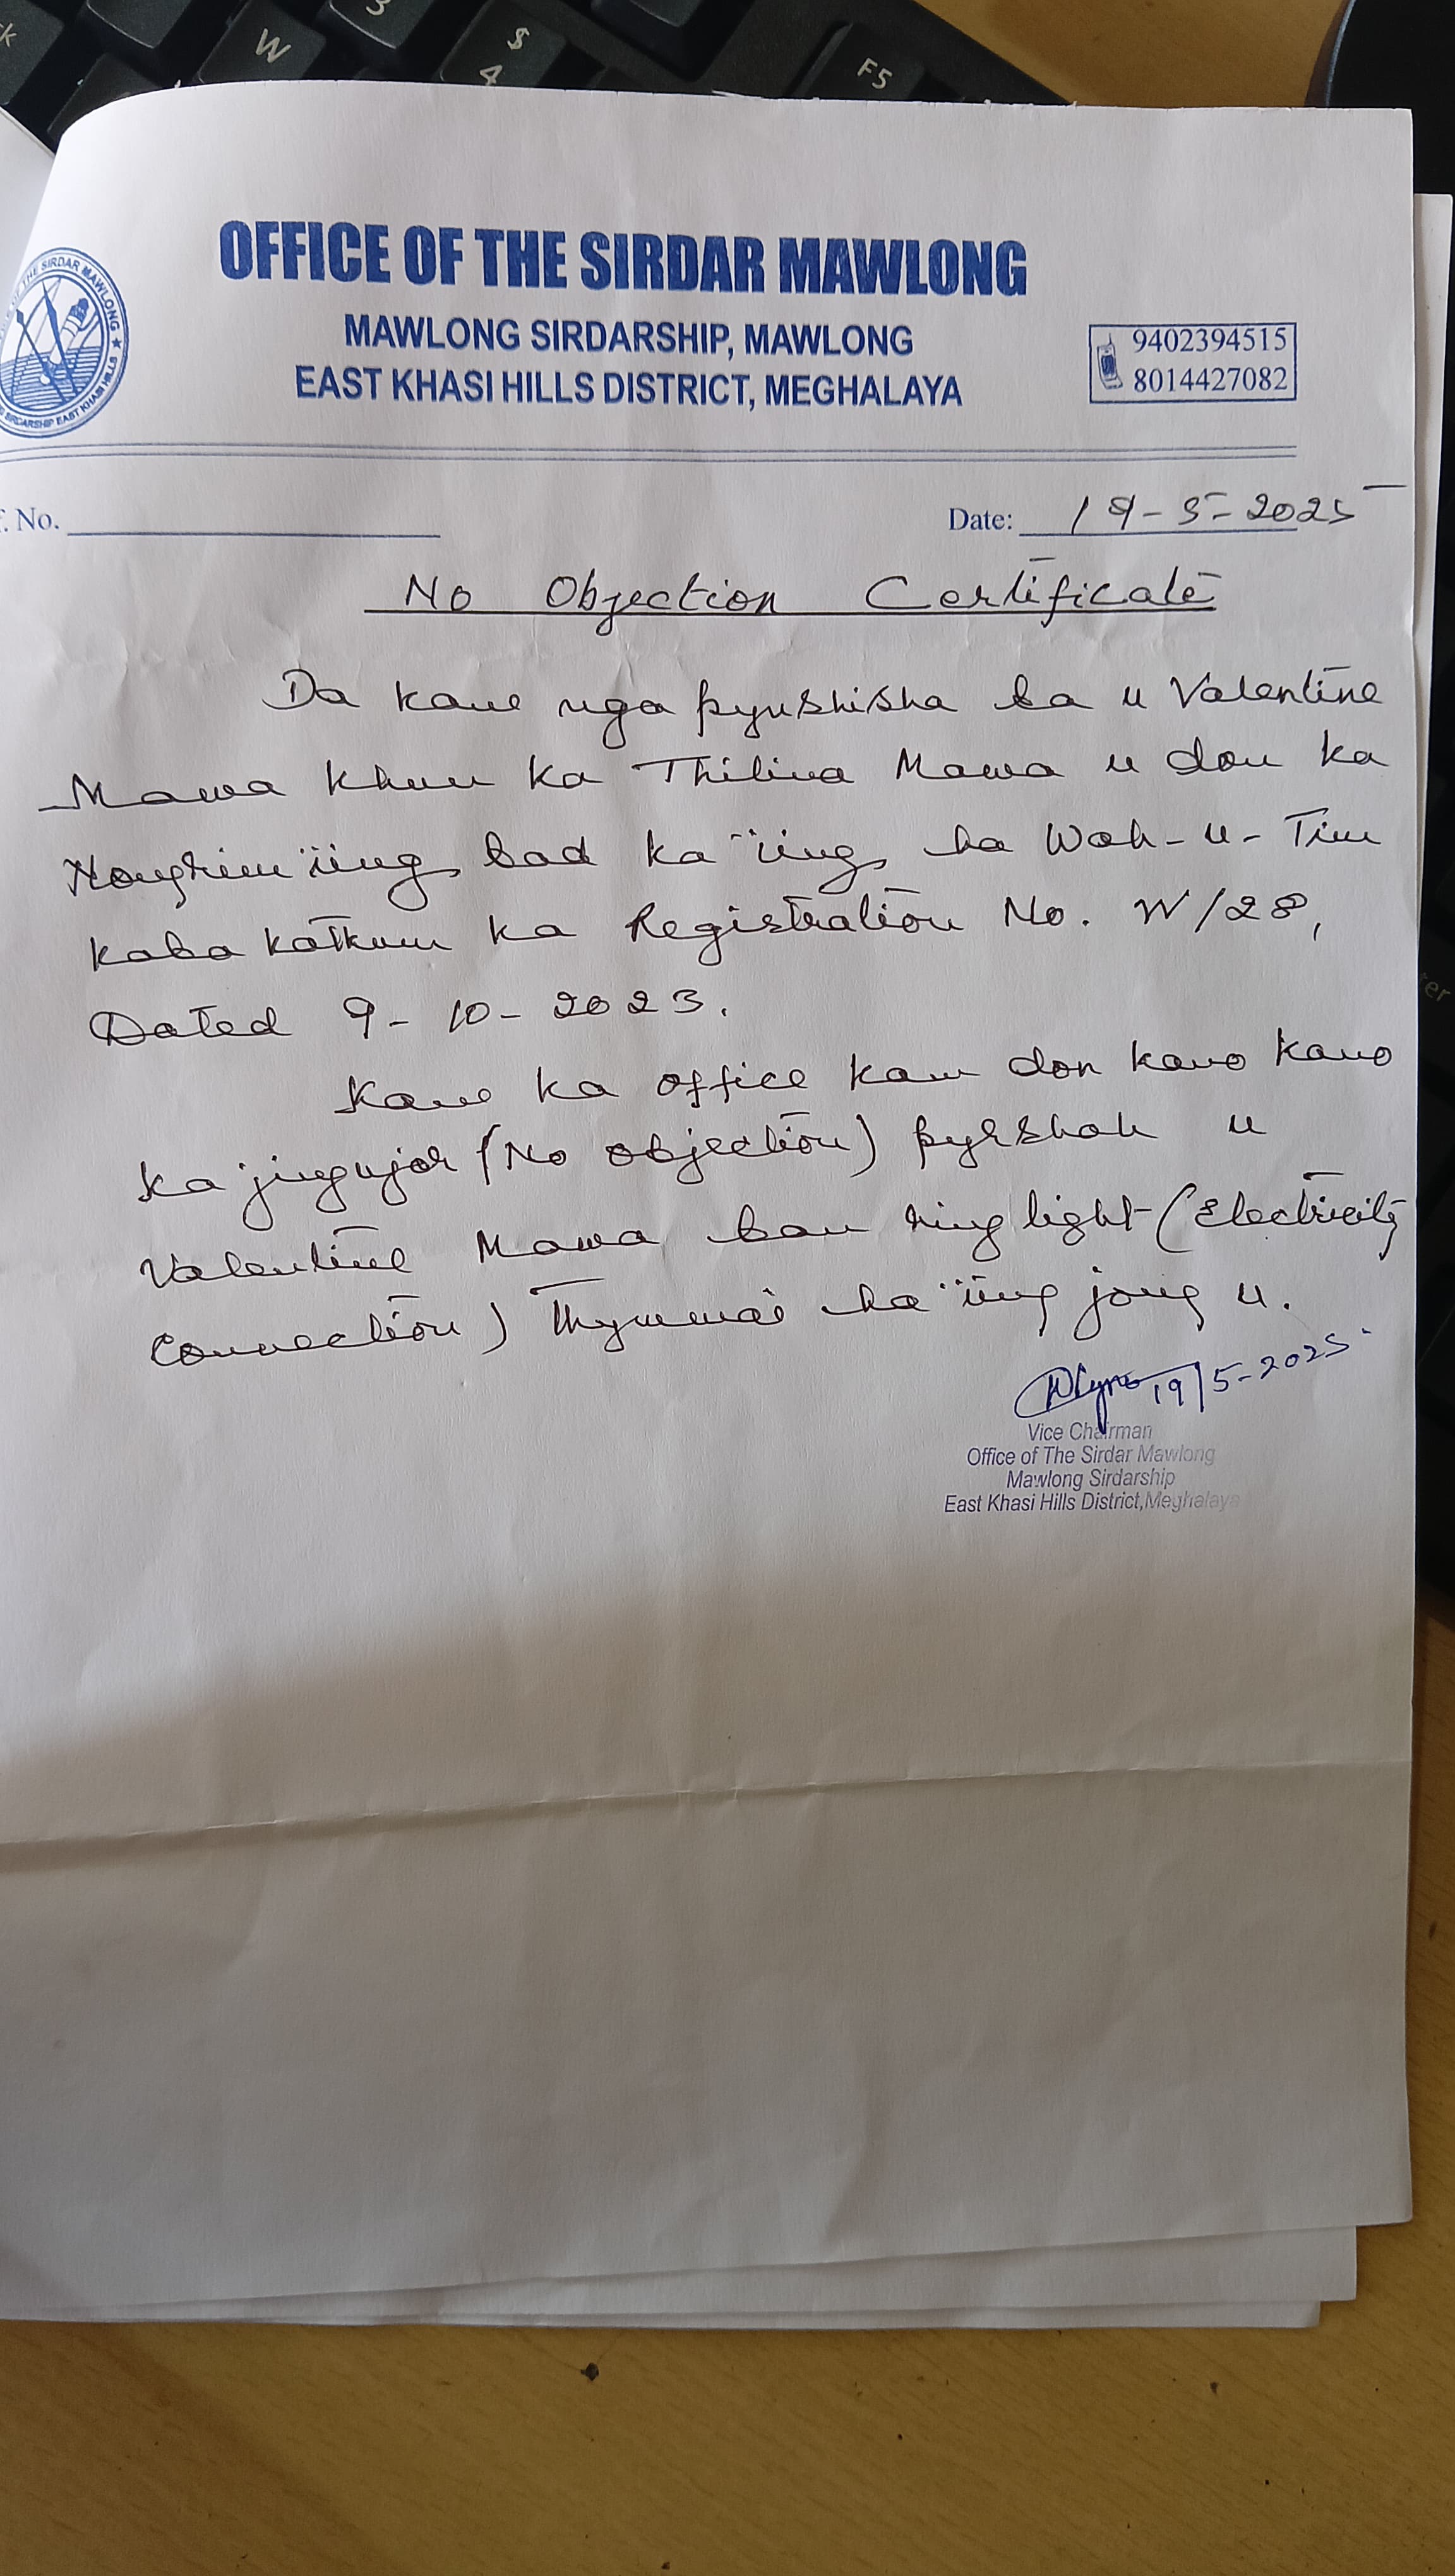 OFFICE OF THE SIRDAR MAWLONG
MAWLONG SIRDARSHIP, MAWLONG
EAST KHASI HILLS DISTRICT, MEGHALAYA
9402394515
8014427082
THE SIRDAR MAWLONG ★
SIRDARSHIP EAST KHASI HILLS
. No.
Date: 19-5-2025
No Objection Certificate
Da kane nga pynshisha ba u Valentine
Mawa khun ka Thilina Mawa u don ka
Nongrim ïing bad ka ïing ha Wah-u-Tim
kaba kotkum ka Registration No. W/28,
Dated 9-10-2023.
Kane ka office kam don kano kano
ka jingujor (No objection) pyrshah u
Valentine Mawa ban ring light (Electricity
Connection) Thymmai ha ïing jong u.
19/5-2025
Vice Chairman
Office of The Sirdar Mawlong
Mawlong Sirdarship
East Khasi Hills District, Meghalaya
W
3
$
4
F5